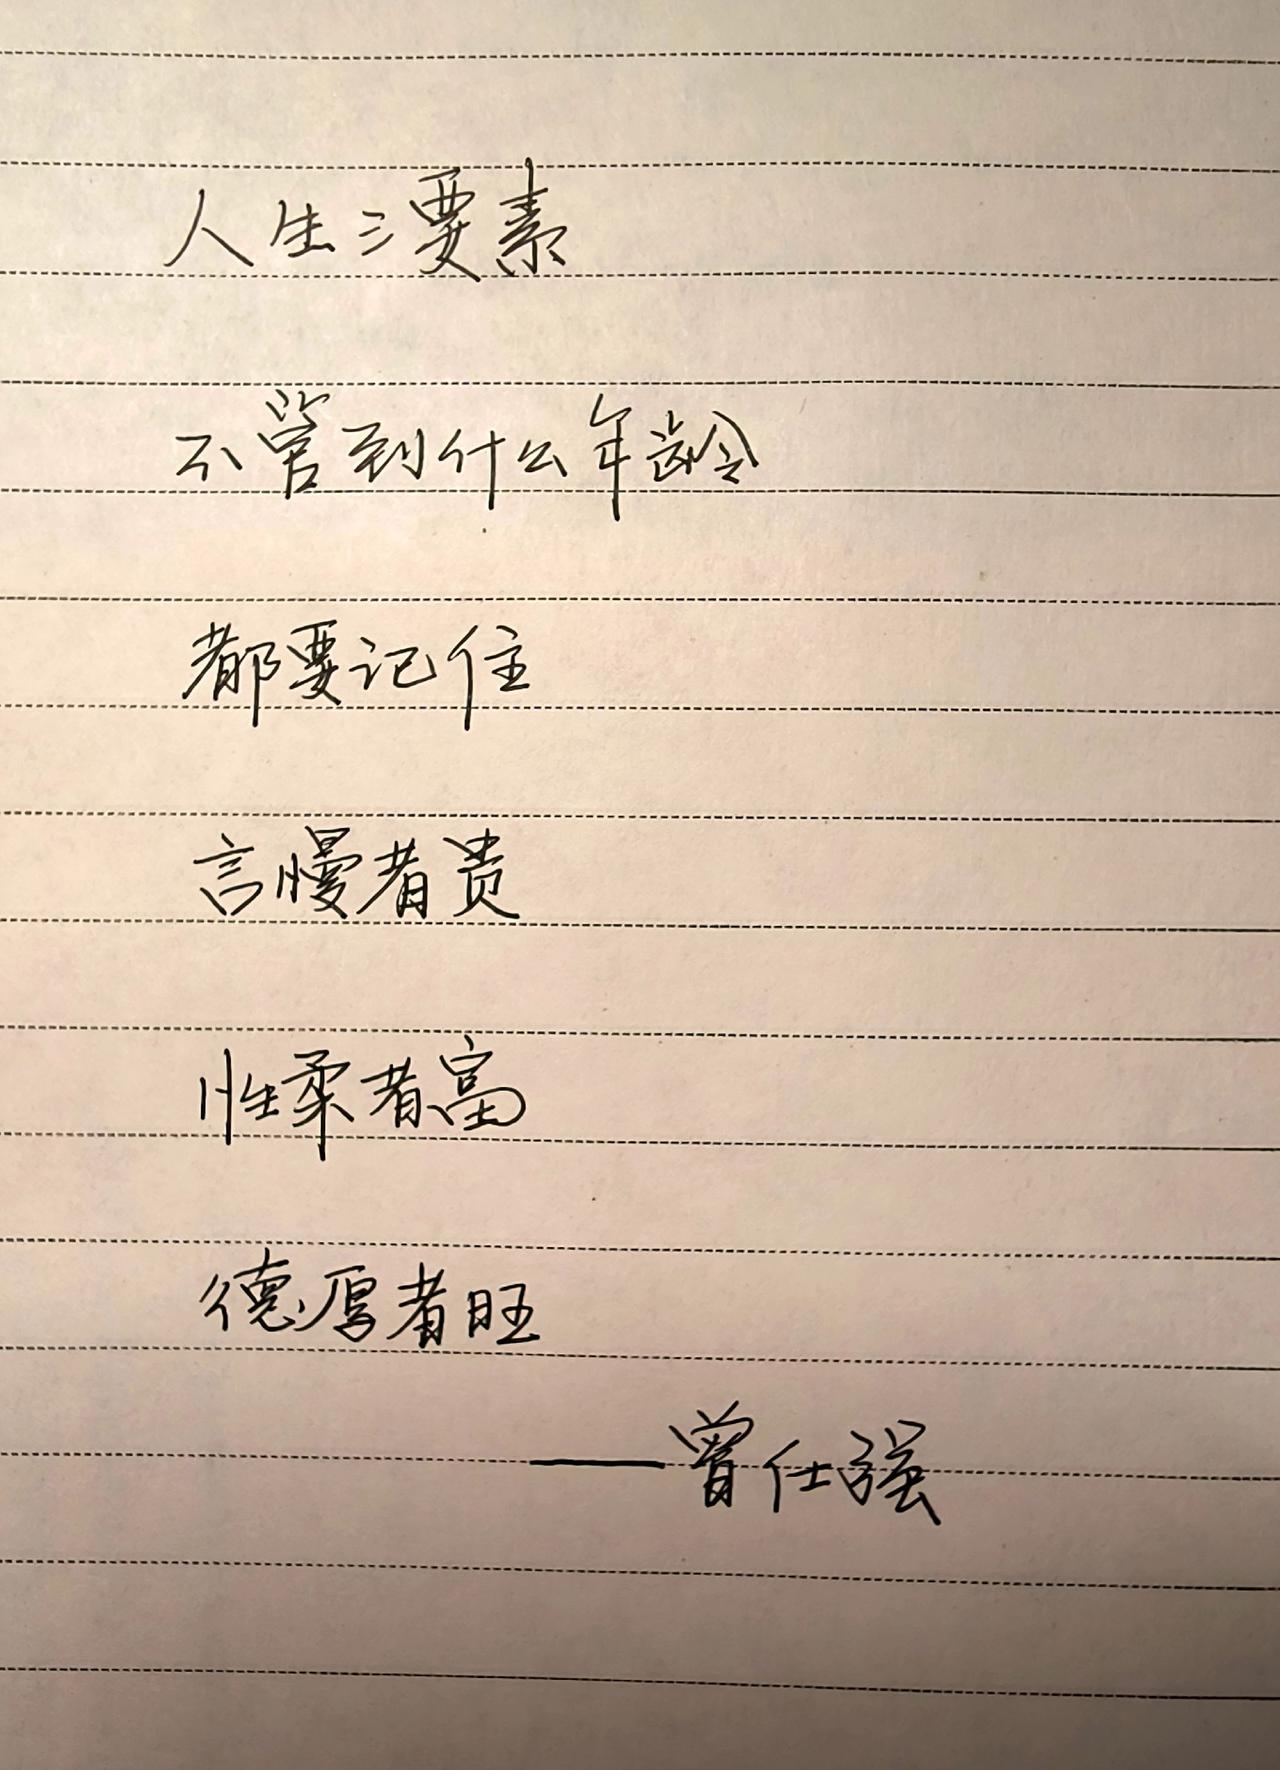 人生三要素
不管到什么年龄
都要记住
言慢者贵
性柔者富
德厚者旺
——曾仕强